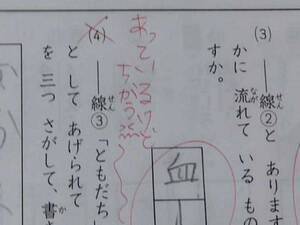 (3) ――線②と あります
かに 流れて いる もの
すか。
血
あっているけど
ちがう
(4) ――線③「ともだち
と して あげられて
を 三つ さがして、書き